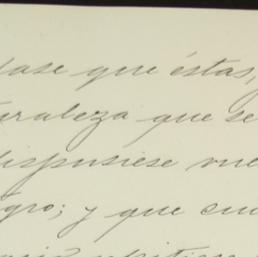 dase que éstas,
turaleza que se
dispusiese vue
gro; y que cua